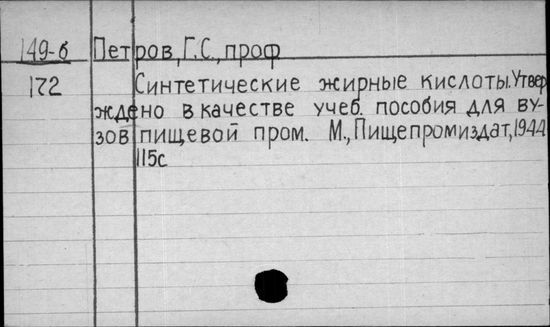 149-б Петров, Г.С., проф
172 Синтетические жирные кислоты. Утвер
ждено в качестве учеб. пособия для ву-
зов пищевой пром. М., Пищепромиздат, 1944
115с